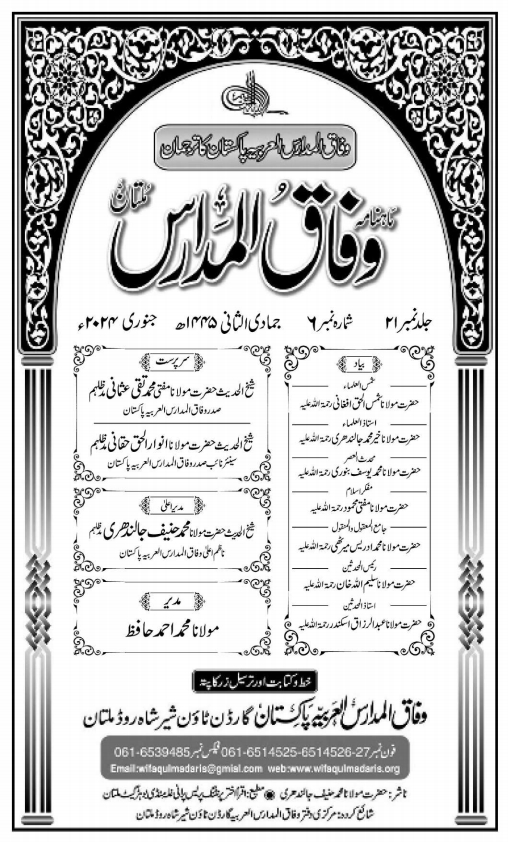 وفاق المدارس العربیہ پاکستان کا ترجمان
ماہنامہ
وفاق المدارس
ملتان
جلد نمبر ۲۱ شمارہ نمبر ۶ جمادی الثانی ۱۴۴۵ھ جنوری ۲۰۲۴ء
بیاد
شمس العلماء
حضرت مولانا شمس الحق افغانی رحمۃ اللہ علیہ
استاذ العلماء
حضرت مولانا خیر محمد جالندھری رحمۃ اللہ علیہ
محدث العصر
حضرت مولانا محمد یوسف بنوری رحمۃ اللہ علیہ
مفکر اسلام
حضرت مولانا مفتی محمود رحمۃ اللہ علیہ
جامع المعقول والمنقول
حضرت مولانا محمد ادریس میرٹھی رحمۃ اللہ علیہ
رئیس المحدثین
حضرت مولانا سلیم اللہ خان رحمۃ اللہ علیہ
استاذ المحدثین
حضرت مولانا عبدالرزاق اسکندر رحمۃ اللہ علیہ
سرپرست
شیخ الحدیث حضرت مولانا مفتی محمد تقی عثمانی مدظلہم
صدر وفاق المدارس العربیہ پاکستان
شیخ الحدیث حضرت مولانا انوار الحق حقانی مدظلہم
سینئر نائب صدر وفاق المدارس العربیہ پاکستان
مدیر اعلیٰ
شیخ الحدیث حضرت مولانا محمد حنیف جالندھری مدظلہم
ناظم اعلیٰ وفاق المدارس العربیہ پاکستان
مدیر
مولانا محمد احمد حافظ
خط و کتابت اور ترسیل زر کا پتہ
وفاق المدارس العربیہ پاکستان گارڈن ٹاؤن شیر شاہ روڈ ملتان
فون نمبر 27-6514526-6514525-061 فیکس نمبر 6539485-061
Email:wifaqulmadaris@gmial.com web:www.wifaqulmadaris.org
ناشر: حضرت مولانا محمد حنیف جالندھری ● مطبع: اقرأ اختر پرنٹنگ پریس پرانی غلہ منڈی بوہڑ گیٹ ملتان
شائع کردہ: مرکزی دفتر وفاق المدارس العربیہ گارڈن ٹاؤن شیر شاہ روڈ ملتان